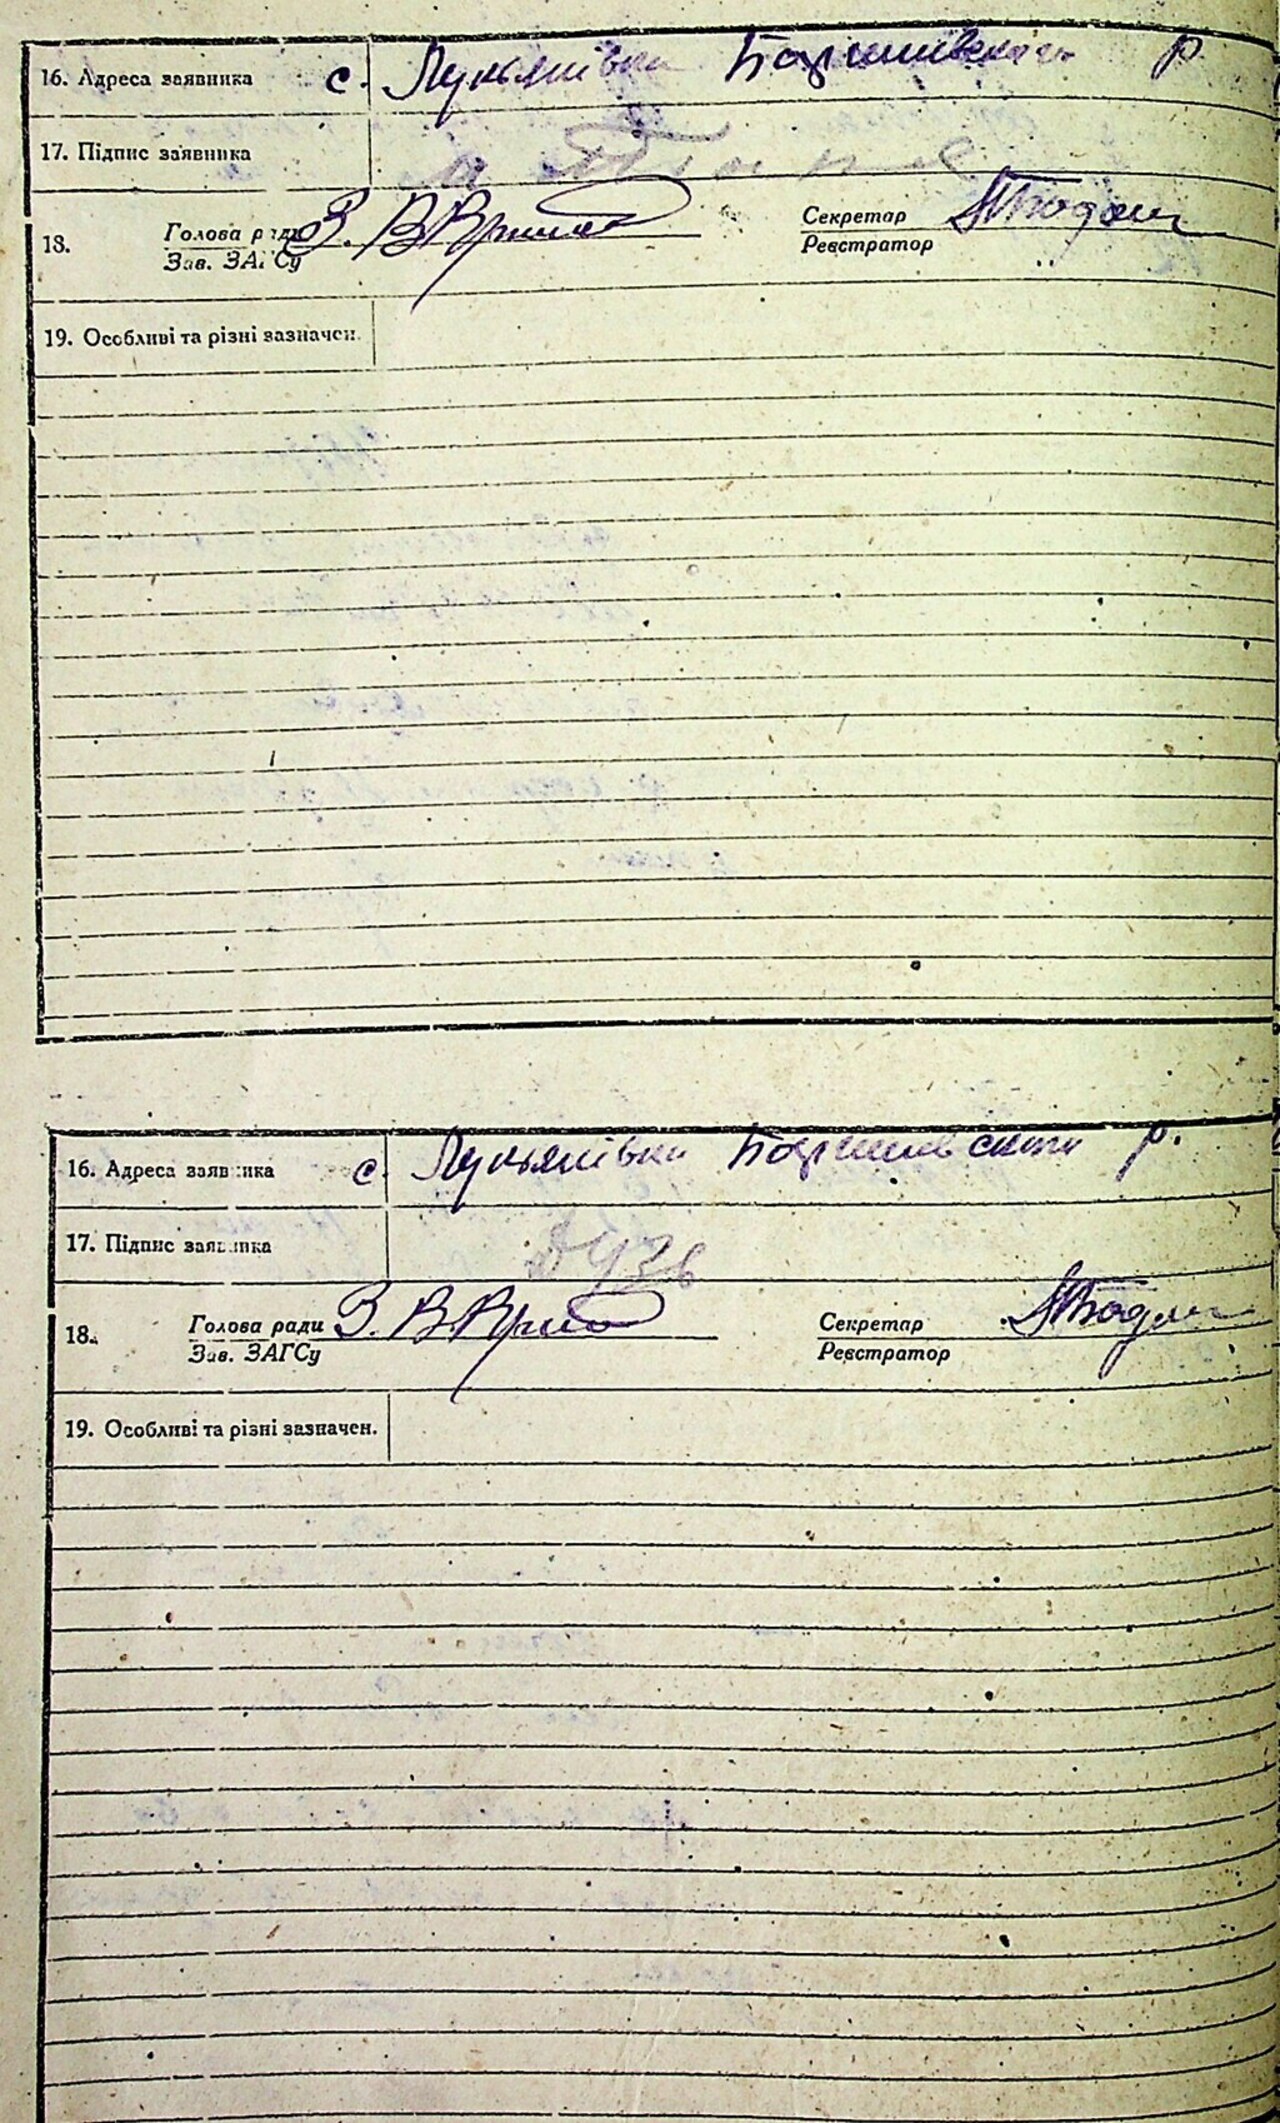 16. Адреса заявника с. Лукьянівка Баришивського р.
17. Підпис заявника
18. Голова ради З. В. Секретар
Зав. ЗАГСу Реєстратор
19. Особливі та різні зазначен.
16. Адреса заявника с. Лукьянівка Баришивського р.
17. Підпис заявника Дузь
18. Голова ради З. В. Секретар
Зав. ЗАГСу Реєстратор
19. Особливі та різні зазначен.